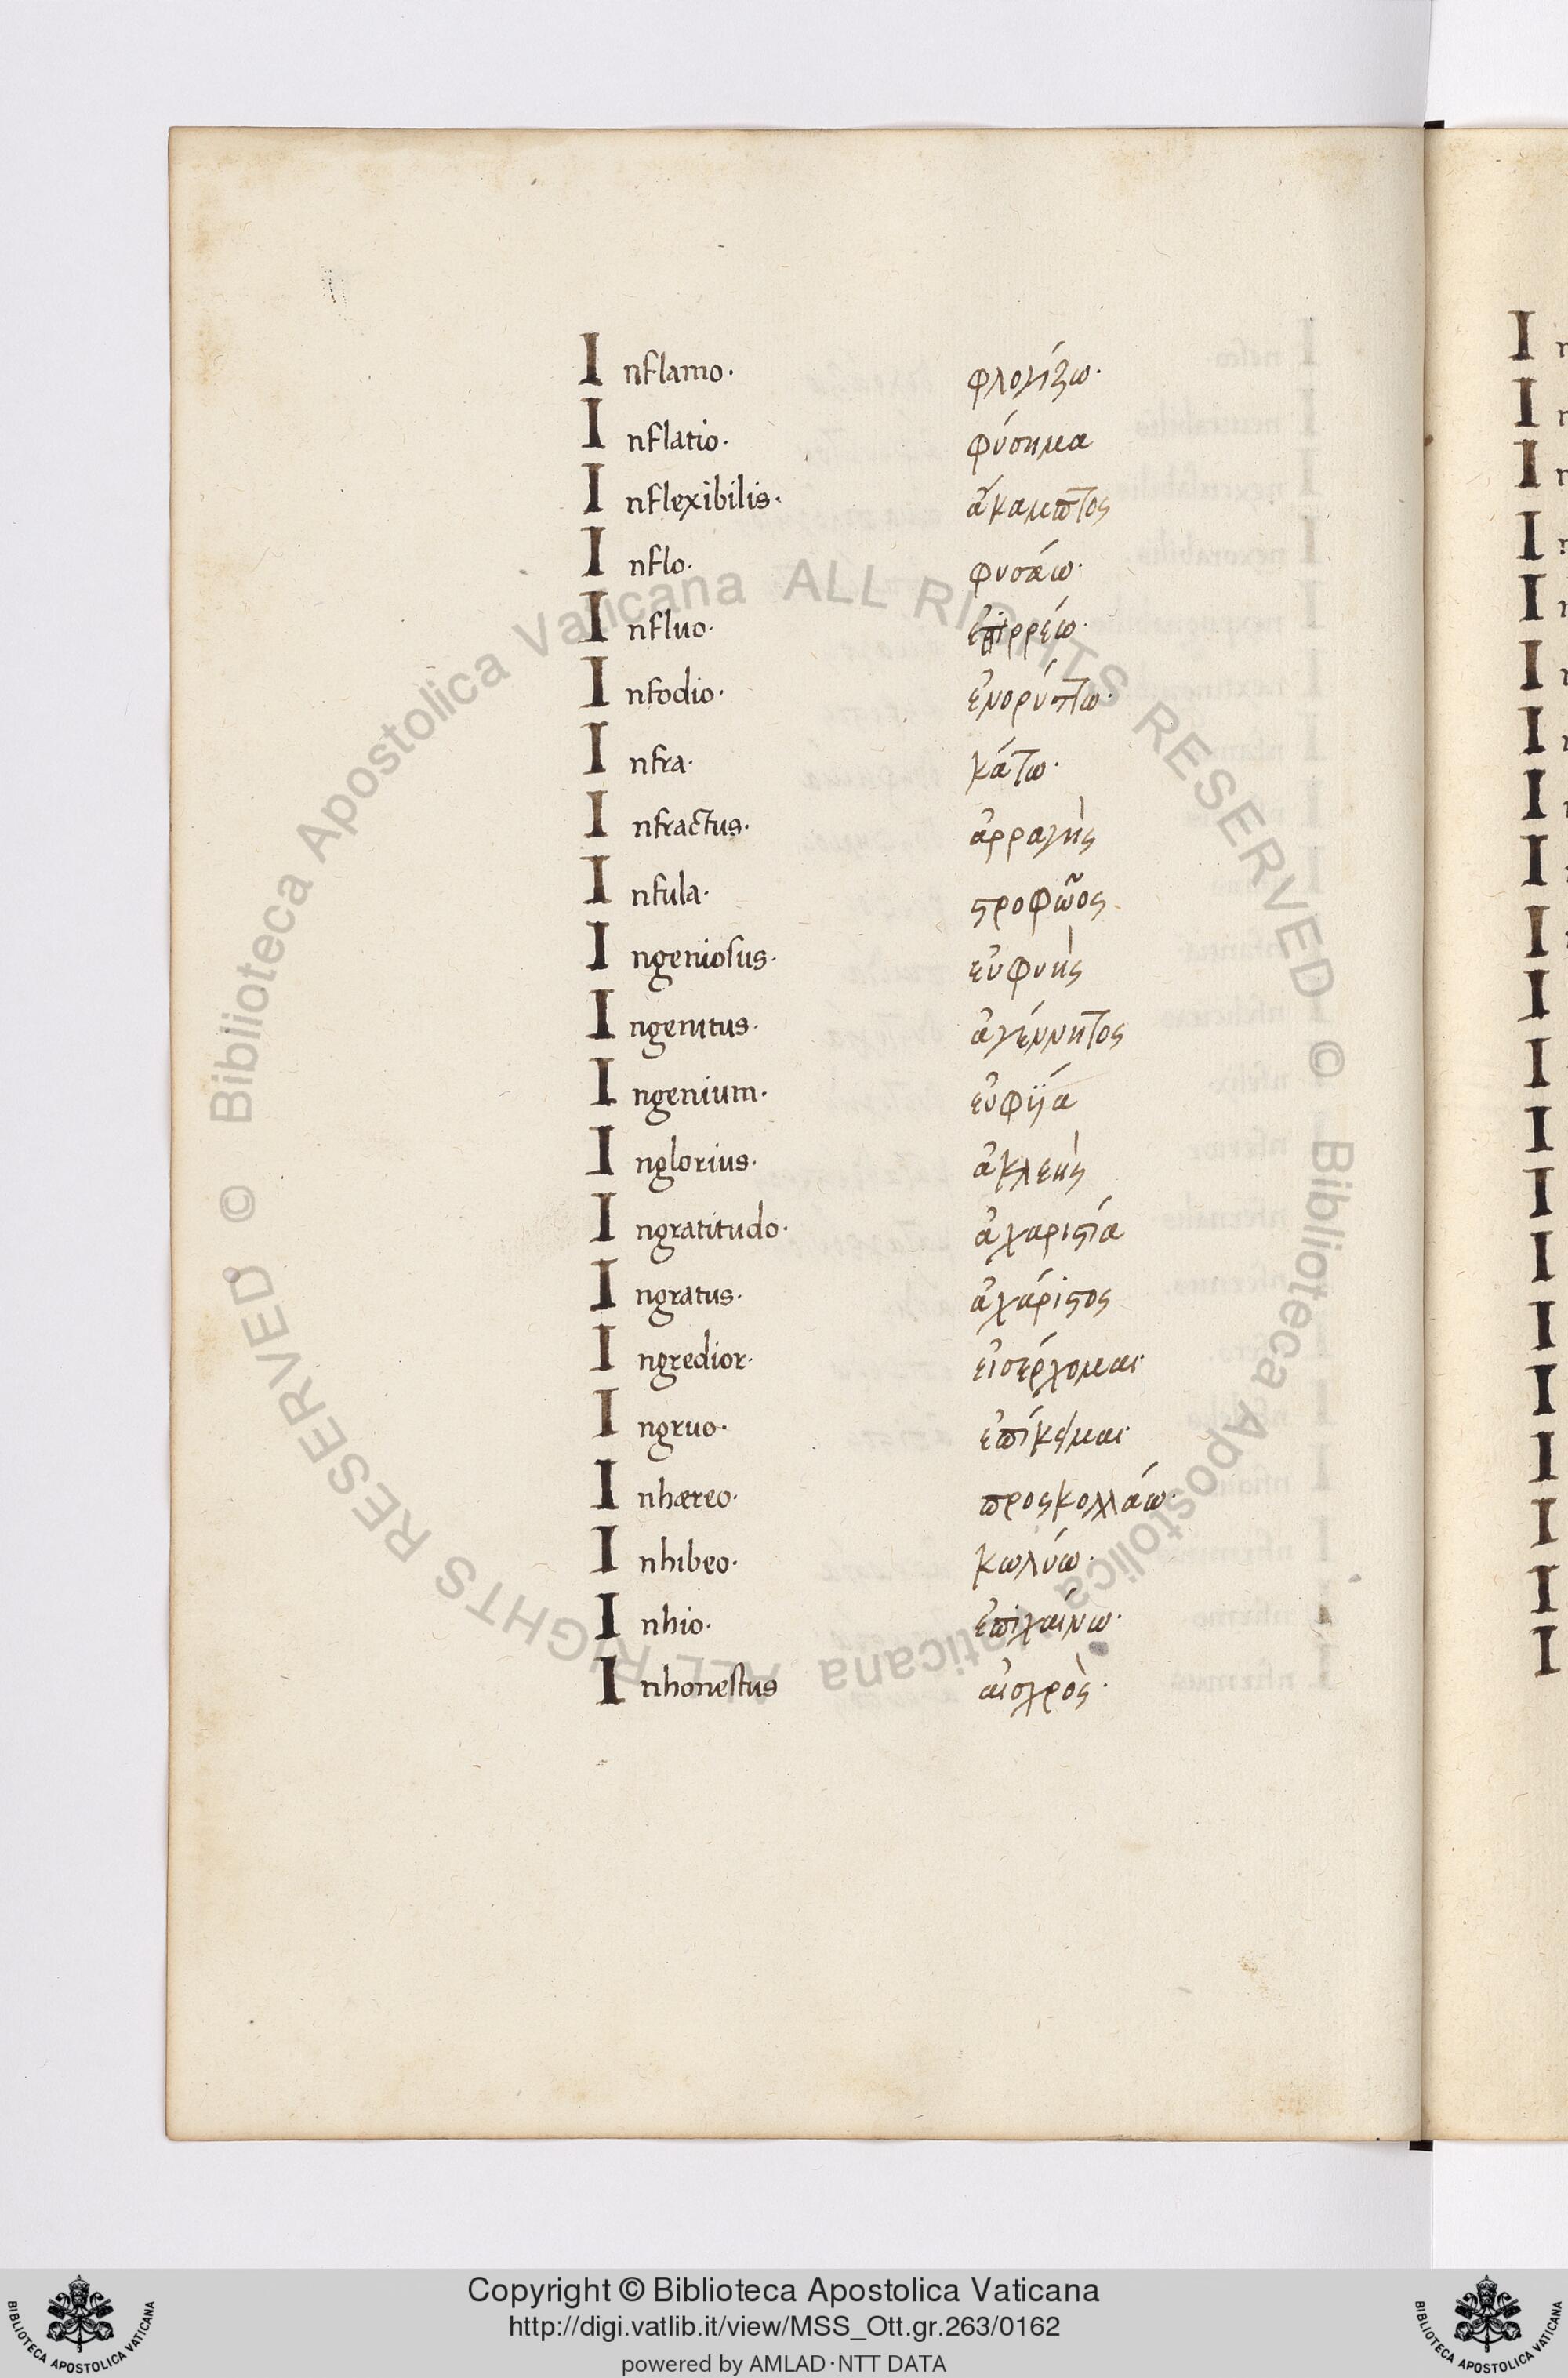 Inflamo· φλογίζω·
Inflatio· φύσημα
Inflexibilis· ἄκαμπτος
Inflo· φυσάω·
Influo· ἐπιρρέω·
Infodio· ἐνορύττω·
Infra· κάτω·
Infractus· ἀρραγὴς
Infula·
Ingeniosus· εὐφυὴς
Ingenitus· ἀγέννητος
Ingenium· εὐφϋία
Inglorius· ἀκλεὴς
Ingratitudo· ἀχαριστία
Ingratus· ἀχάριστος
Ingredior· εἰσέρχομαι·
Ingruo· ἐπίκειμαι·
Inhæreo· προσκολλάω·
Inhibeo· κωλύω·
Inhio· ἐπιχαίνω·
Inhonestus αἰσχρὸς·
© Biblioteca Apostolica Vaticana ALL RIGHTS RESERVED
© Biblioteca Apostolica Vaticana ALL RIGHTS RESERVED
Copyright © Biblioteca Apostolica Vaticana
http://digi.vatlib.it/view/MSS_Ott.gr.263/0162
powered by AMLAD·NTT DATA
BIBLIOTECA APOSTOLICA VATICANA
BIBLIOTECA APOSTOLICA VATICANA